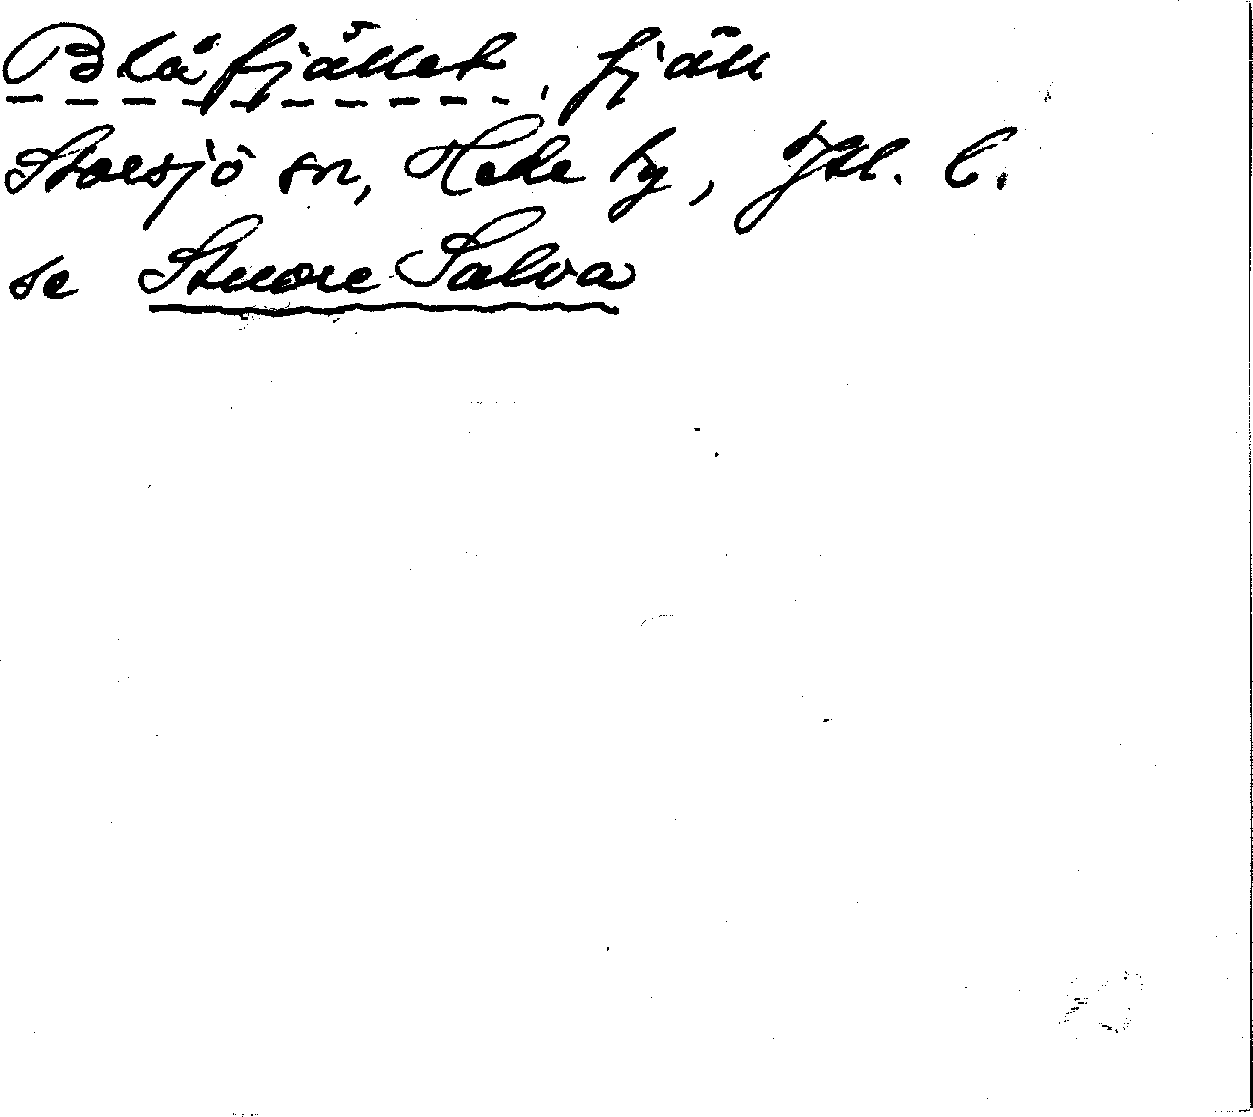 Blåfjället, fjäll
Storsjö sn, Hede tg, Jtl. l.
se Stuore Salva